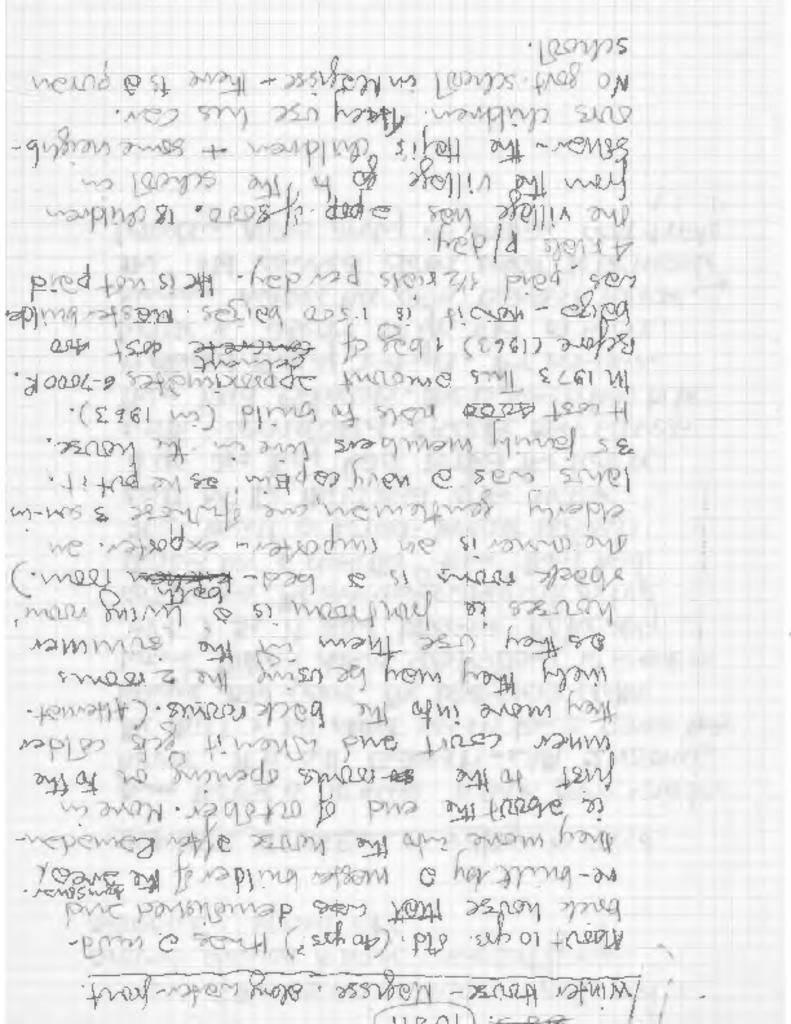 10 am
Winter House - Nagisse. along water-front.
About 10 yrs. old. (40 yrs?) Has a mud-
brick house that was demolished and
re-built by a master builder of the area,
they move into the house after Ramadan -
ie about the end of october. Move in
first to the rooms opening on to the
inner court and when it gets colder
they move into the back rooms. (Alternat-
ively they may be using the 2 rooms
as they use them in the summer
houses ie frontroom is a living room,
aback rooms is a bed- kitchen bath room.)
The owner is an importer - exporter. an
elderly gentleman, one of whose 3 son-in
laws was a navy captain as he put it.
35 family members live in the house.
It cost rials to build (in 1963).
In 1973 This amount approximates 6-7000 R.
Before (1963) 1 bag of concrete cement cost 400
baizas - now it is 1.500 baizas. Master builder
was paid 1/2 rials per day. He is not paid
4 rials p/day.
The village has a pop. of 8000. 18 children
from the village go to the school in
- the children + some neighb-
ours children. They use his car.
No govt. school in Nagisse - there is a quran
school.